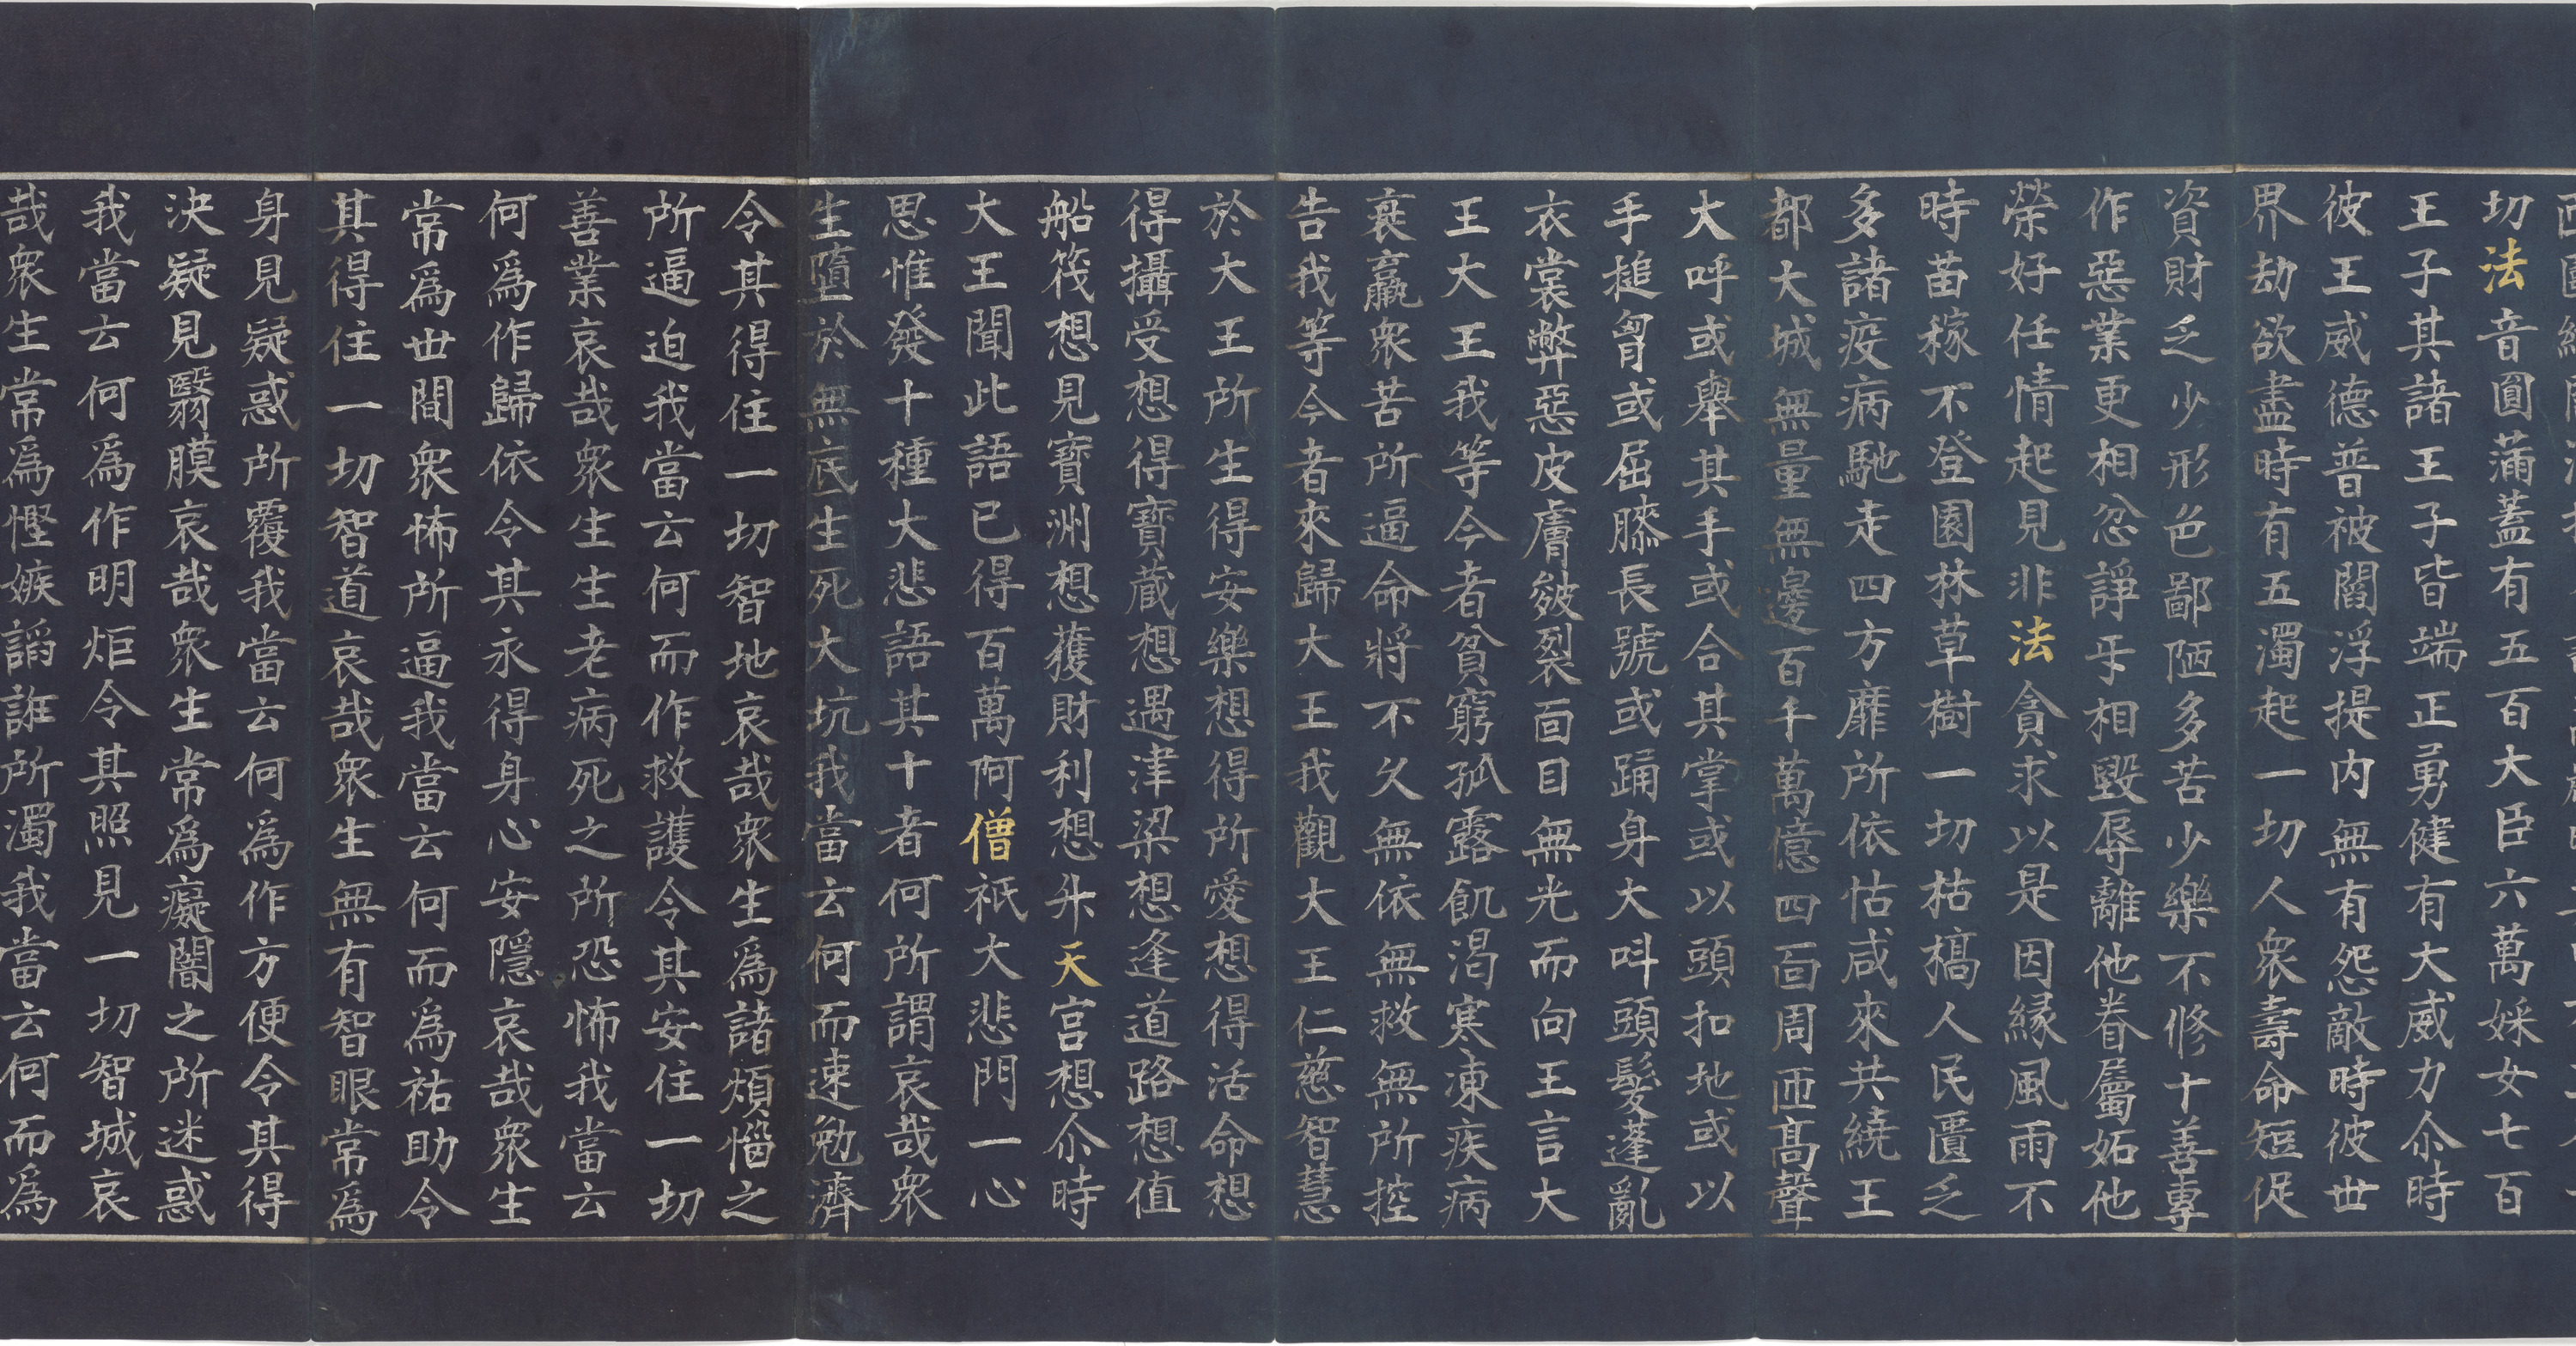 切法音圓滿蓋有五百大臣六萬婇女七百
王子其諸王子皆端正勇健有大威力尒時
彼王威德普被閻浮提内無有怨敵時彼世
界劫欲盡時有五濁起一切人衆壽命短促
資財乏少形色鄙陋多苦少樂不修十善專
作惡業更相忿諍㸦相毀辱離他眷屬妬他
榮好任情起見非法貪求以是因縁風雨不
時苗稼不登園林草樹一切枯槁人民匱乏
多諸疫病馳走四方靡所依怙咸來共繞王
都大城無量無邊百千萬億四面周匝髙聲
大呼或舉其手或合其掌或以頭扣地或以
手搥胷或屈膝長號或踊身大叫頭髮蓬亂
衣裳弊惡皮膚皴裂面目無光而向王言大
王大王我等今者貧窮孤露飢渇寒凍疾病
衰羸衆苦所逼命將不久無依無救無所控
告我等今者來歸大王我觀大王仁慈智慧
於大王所生得安樂想得所愛想得活命想
得攝受想得寶蔵想遇津梁想逢道路想值
船筏想見寶洲想獲財利想升天宫想尒時
大王聞此語已得百萬阿僧祇大悲門一心
思惟發十種大悲語其十者何所謂哀哉衆
生墮於無底生死大坑我當云何而速勉濟
令其得住一切智地哀哉衆生爲諸煩惱之
所逼迫我當云何而作救護令其安住一切
善業哀哉衆生生老病死之所恐怖我當云
何爲作歸依令其永得身心安隱哀哉衆生
常爲世間衆怖所逼我當云何而爲祐助令
其得住一切智道哀哉衆生無有智眼常爲
身見疑惑所覆我當云何爲作方便令其得
決疑見翳膜哀哉衆生常爲癡闇之所迷惑
我當云何爲作明炬令其照見一切智城哀
哉衆生常爲慳嫉諂誑所濁我當云何而爲